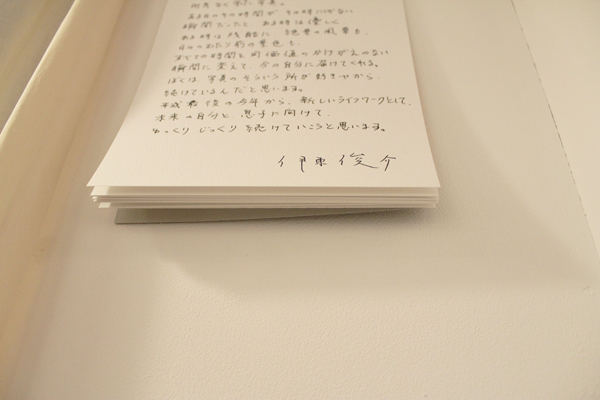 何気なく来た写真。
瞬間だったと ある時は優しく
ある時は残酷に 絶景の風景も
日々のあたり前の景色も、
すべての時間を同価値のかけがえのない
瞬間に変えて 今の自分に届けてくれる。
ぼくは 写真の そういう 所が好きやから、
続けているんだと思います。
平成最後の今年から、新しいライフワークとして、
未来の自分と、息子に向けて、
ゆっくり じっくり 続けていこうと思います。
伊東俊介